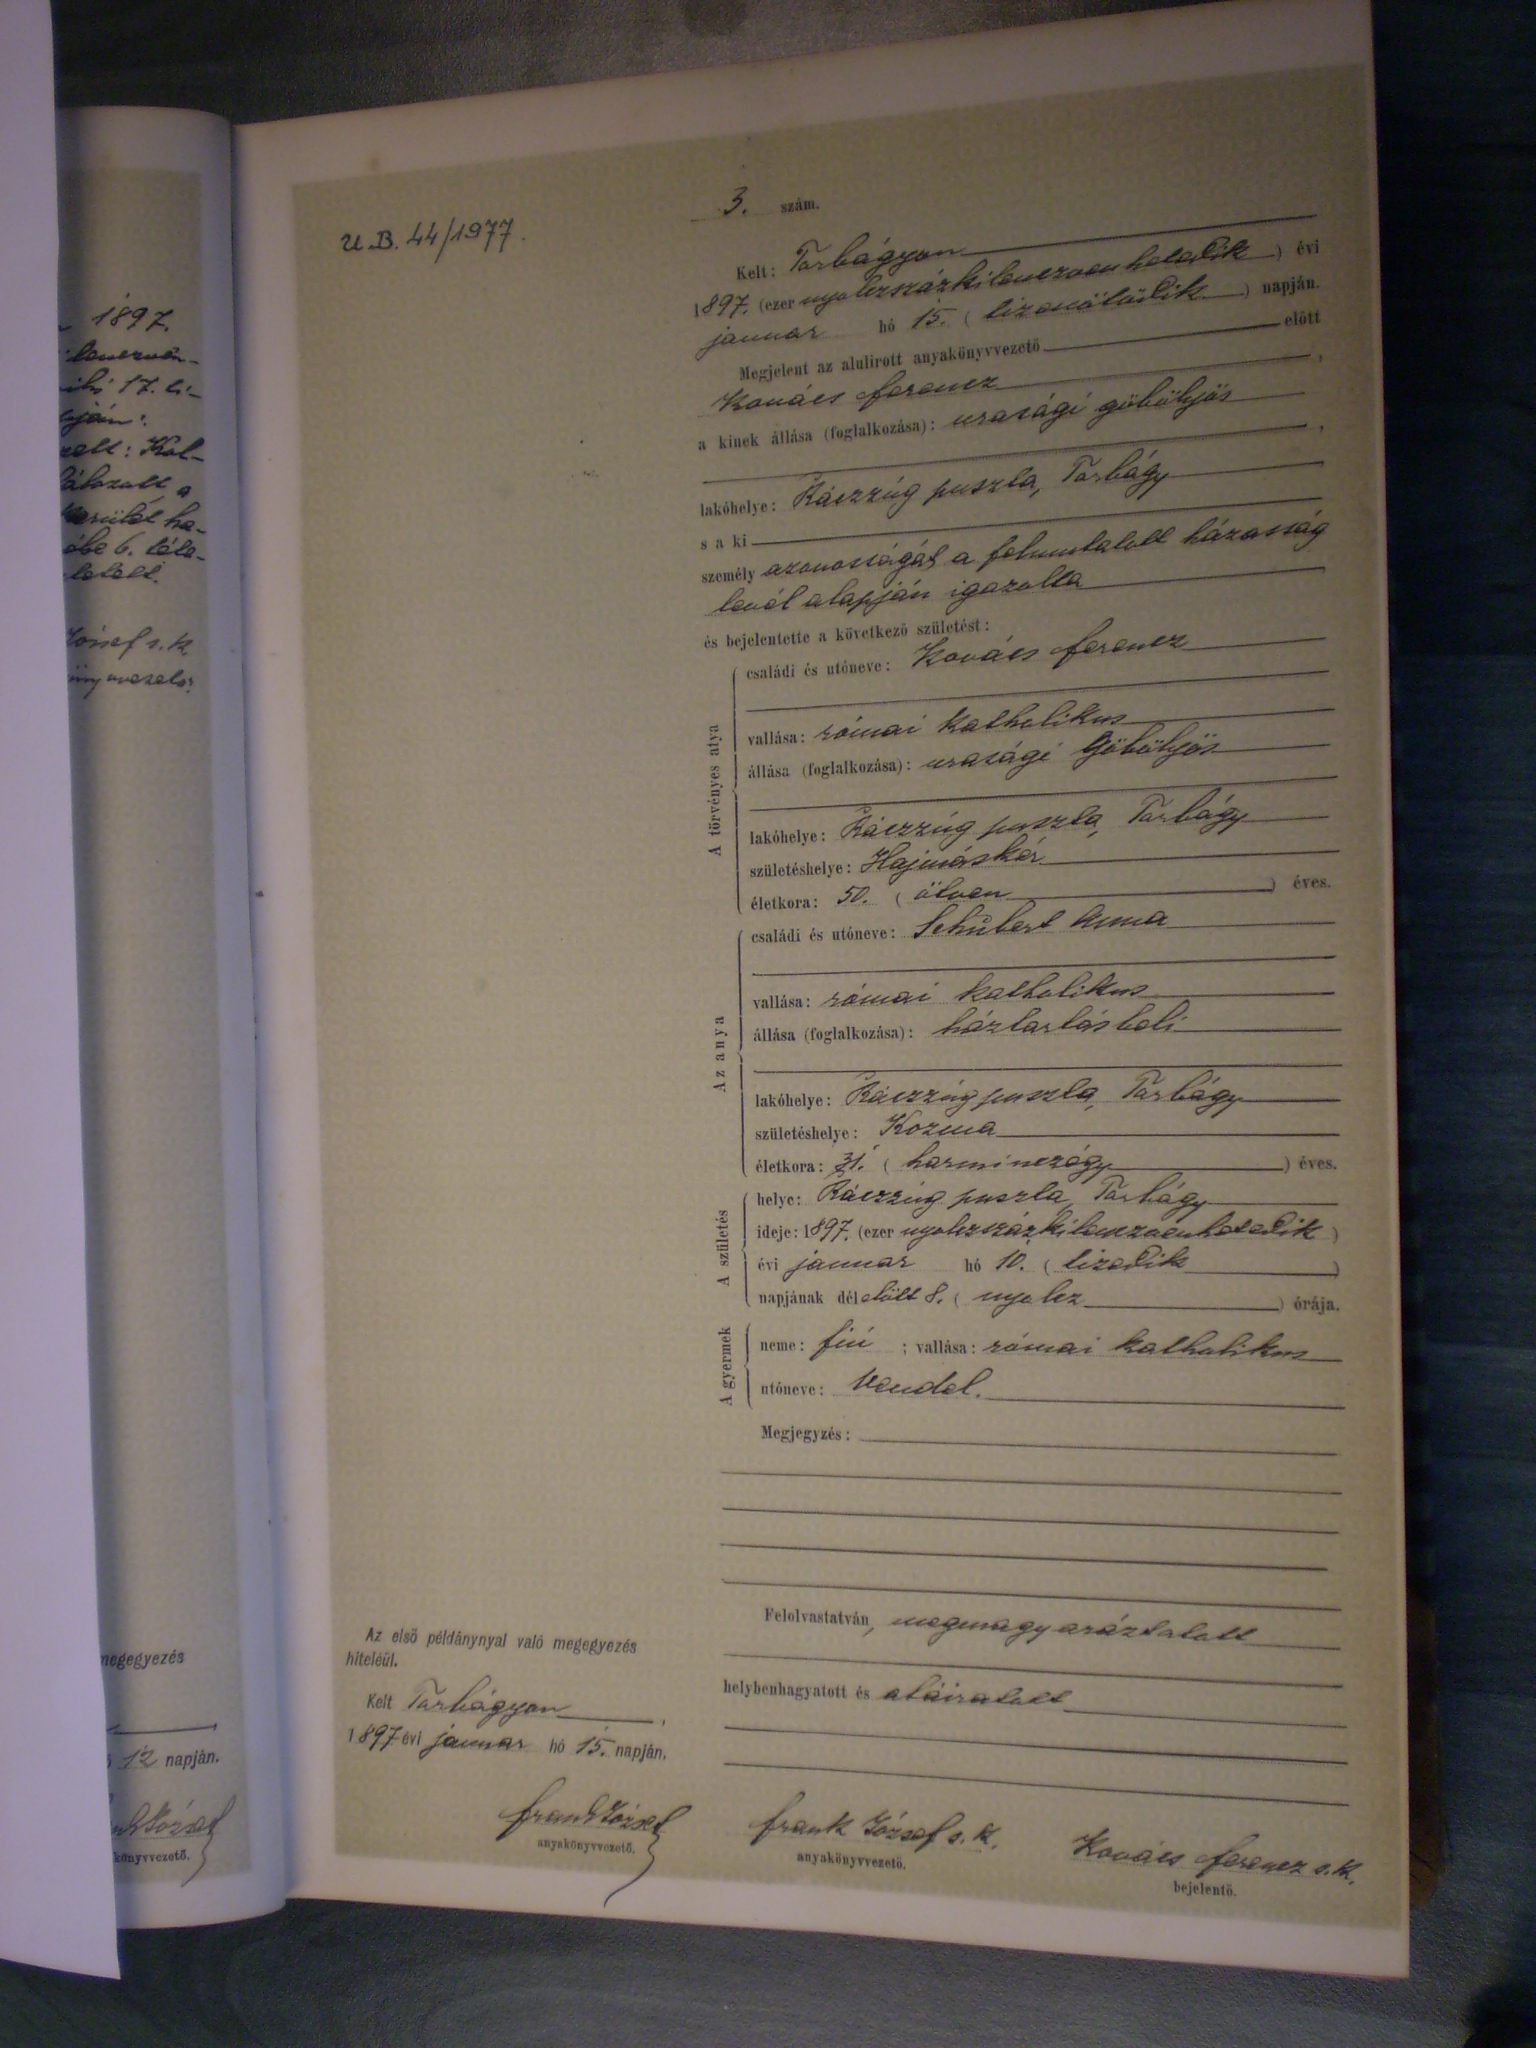 1897.
17. ti-
József s. k.
megegyezés
12 napján.
könyvvezető.
U.B. 44/1977.
3. szám.
Kelt: Torbágyon
1897. (ezer nyolczszázkilenczvenhetedik) évi
januar hó 15. (tizenötödik) napján.
Megjelent az alulirott anyakönyvvezető előtt
Kovács Ferencz,
a kinek állása (foglalkozása): urasági göbölyös,
lakóhelye: Ráczzúg puszta, Torbágy
s a ki
személy azonosságát a felmutatott házasság
levél alapján igazolta
és bejelentette a következő születést:
A törvényes atya
családi és utóneve: Kovács Ferencz
vallása: római katholikus
állása (foglalkozása): urasági göbölyös
lakóhelye: Ráczzúg puszta, Torbágy
születéshelye: Hajmáskér
életkora: 50. (ötven) éves.
Az anya
családi és utóneve: Schubert Anna
vallása: római katholikus
állása (foglalkozása): háztartásbeli
lakóhelye: Ráczzúg puszta, Torbágy
születéshelye: Kozma
életkora: 31. (harminczegy) éves.
A születés
helye: Ráczzúg puszta, Torbágy
ideje: 1897. (ezer nyolczszázkilenczvenhetedik)
évi januar hó 10. (tizedik)
napjának délelőtt 8. (nyolcz) órája.
A gyermek
neme: fiú; vallása: római katholikus
utóneve: Vendel.
Megjegyzés:
Felolvastatván, megmagyaráztatott
helybenhagyatott és aláiratott
Az első példánynyal való megegyezés
hiteléül.
Kelt Torbágyon,
1897 évi januar hó 15. napján.
Frank József
anyakönyvvezető.
Frank József s. k.
anyakönyvvezető.
Kovács Ferencz s. k.
bejelentő.